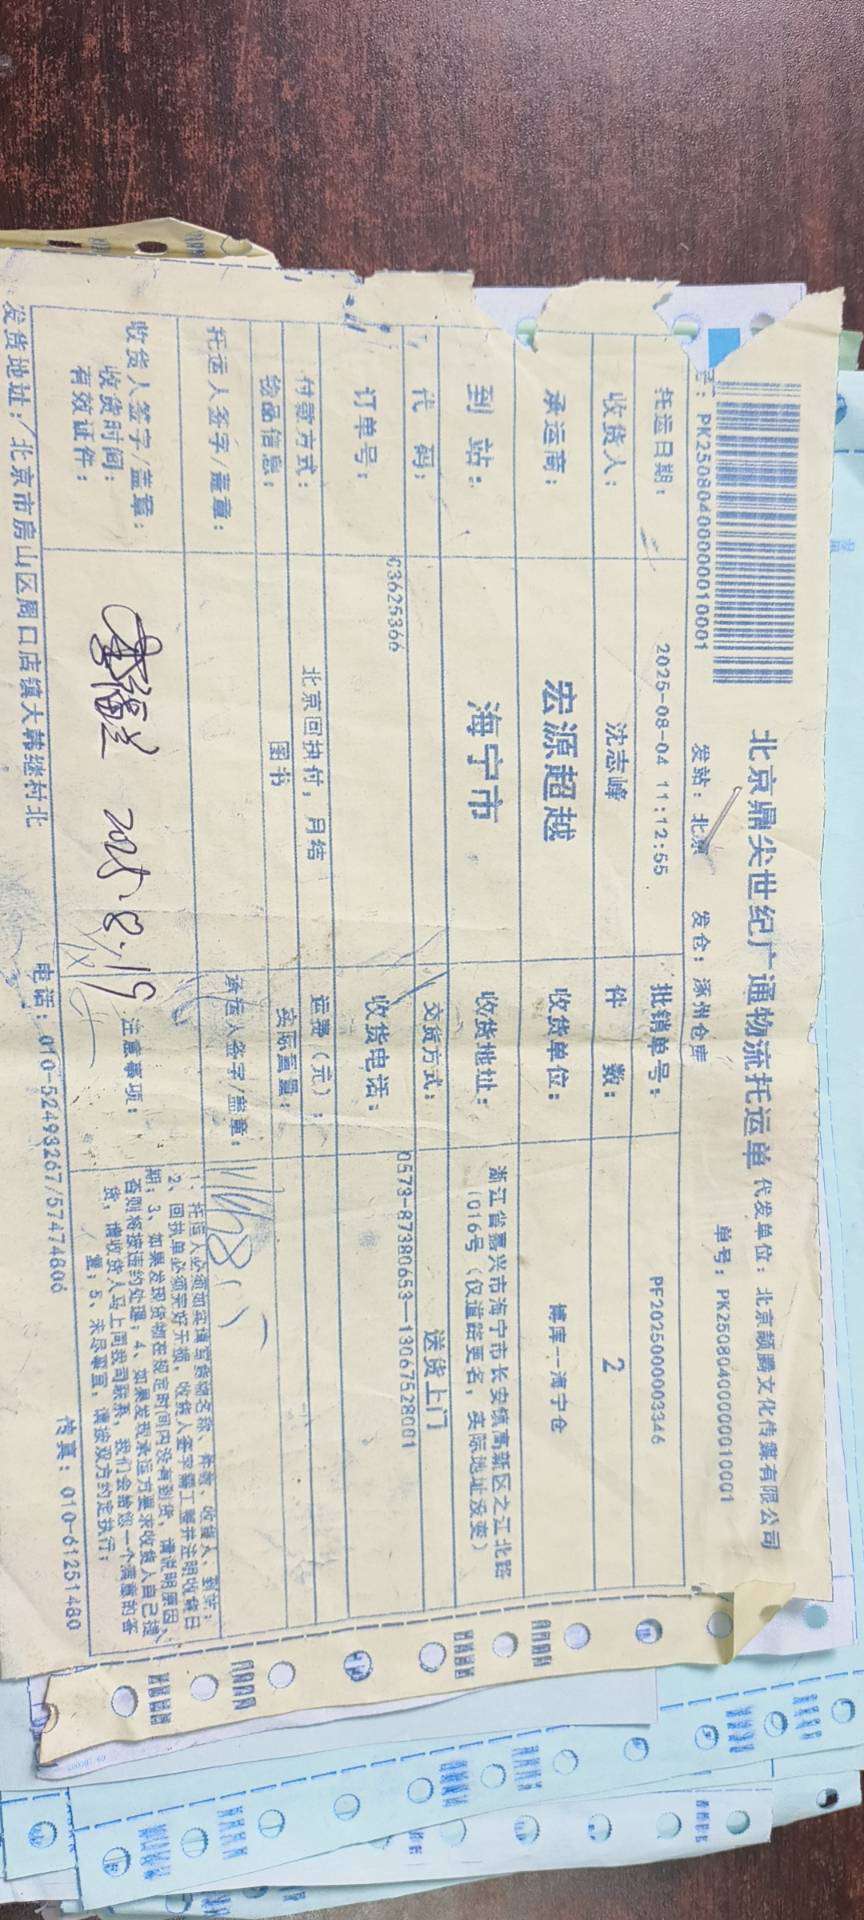 北京鼎尖世纪广通物流托运单 代发单位：北京颉腾文化传媒有限公司
号：PK25080400000010001 发站：北京 发仓：涿州仓库 单号：PK25080400000010001
托运日期： 2025-08-04 11:12:55 批销单号： PF2025000003346
收货人： 沈志峰 件 数： 2
承运商： 宏源超越 收货单位： 博库--海宁仓
到 站： 海宁市 收货地址： 浙江省嘉兴市海宁市长安镇高新区之江北路
1016号（仅道路更名，实际地址没变）
代 码： 交货方式： 送货上门
订单号： 03625366 收货电话： 0573-87380653--13067528001
付款方式： 北京回执付，月结 运费（元）：
物品信息： 图书 实际重量：
托运人签字/盖章： 承运人签字/盖章：
收货人签字/盖章：
收货时间： 2025.8.19
有效证件：
注意事项：
1、托运人必须如实填写货物名称、件数、收货人、到站；
2、回执单必须完好无损，收货人签字需工整并注明收货日
期；3、如果发现货物在规定时间内没有到货，请说明原因，
否则将按违约处理；4、如果发现承运方要求收货人自己提
货，请收货人马上同我司联系，我们会给您一个满意的答
复；5、未尽事宜，请按双方约定执行；
发货地址：北京市房山区周口店镇大韩继村北 电话：010-52493267/57474806 传真：010-61251480